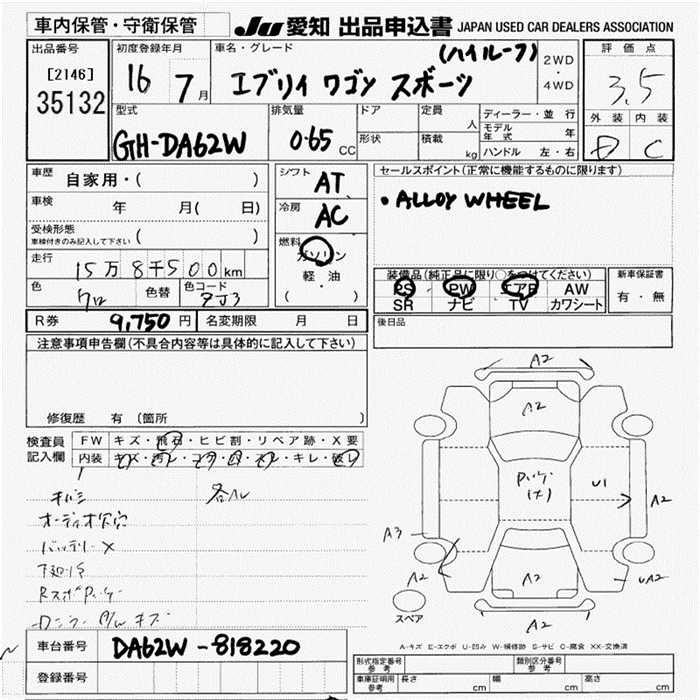 車内保管・守衛保管
JU 愛知 出品申込書 JAPAN USED CAR DEALERS ASSOCIATION
出品番号
[2146]
35132
初度登録年月
16 7月
車名・グレード
(ハイルーフ)
エブリイ ワゴン スポーツ
2WD
・
4WD
評価点
3.5
外装 内装
D C
型式
GH-DA62W
排気量
0.65 CC
ドア
形状
定員 人
積載 kg
ディーラー・並行
モデル年式 年
ハンドル 左・右
車歴 自家用・( )
車検 年 月(日 )
受検形態
車検付きのみ記入して下さい ( )
走行 15万8千500km
色 クロ 色替 色コード ZJ3
R券 9,750円 名変期限 月 日
シフト AT
冷房 AC
燃料
ガソリン
軽・油
( )
セールスポイント(正常に機能するものに限ります)
・ALLOY WHEEL
装備品(純正品に限り○をつけてください)
PS PW エアB AW
SR ナビ TV カワシート
新車保証書
有・無
後日品
注意事項申告欄(不具合内容等は具体的に記入して下さい)
修復歴 有(箇所 )
検査員
記入欄
FW キズ・飛石・ヒビ割・リペア跡・X要
内装 キズ・汚レ・コゲ・凹・スレ・キレ・破レ
オーディオ欠品
バッテリーX
A2
A2
U1
A2
A3
A2
A2
UA2
A2
スペア
A-キズ E-エクボ U-凹み W-補修跡 S-サビ C-腐食 XX-交換済
車台番号 DA62W-818220
登録番号
形式指定番号
参考
類別区分番号
参考
車庫証明用
参考
長さ cm 幅 cm 高さ cm